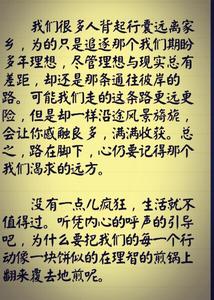 我们很多人背起行囊远离家
乡，为的只是追逐那个我们期盼
多年理想，尽管理想与现实总有
差距，却还是那条通往彼岸的
路。可能我们走的这条路更远更
险，但是却一样沿途风景旖旎，
会让你感触良多，满满收获。总
之，路在脚下，心仍要记得那个
我们渴求的远方。
没有一点儿疯狂，生活就不
值得过。听凭内心的呼声的引导
吧，为什么要把我们的每一个行
动像一块饼似的在理智的煎锅上
翻来覆去地煎呢。